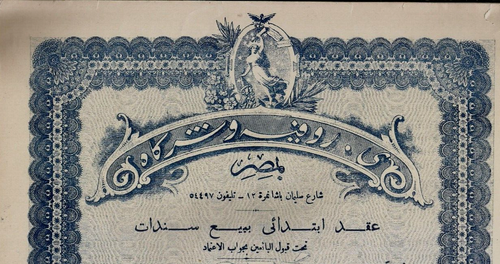 ى. روفيه وشركاه
بمصر
شارع سليمان باشا نمرة ١٢ - تليفون ٥٤٤٩٧
عقد ابتدائى ببيع سندات
تحت قبول البائعين بموجب الاعتماد